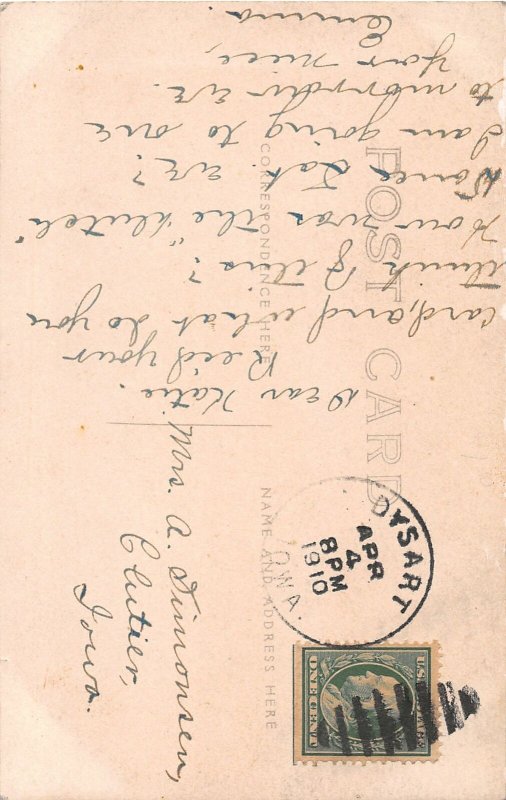 POST CARD
CORRESPONDENCE HERE
NAME AND ADDRESS HERE
Dear Katie.
Rec'd your
card, and what do you
think of this?
How was the "klutch"
Dance Sat. eve?
I am going to one
to morrow eve.
Your niece,
Emma.
DYSART
APR
4
8PM
1910
IOWA.
U.S. POSTAGE
ONE CENT
Mrs. A. Simonsen,
Clutier,
Iowa.